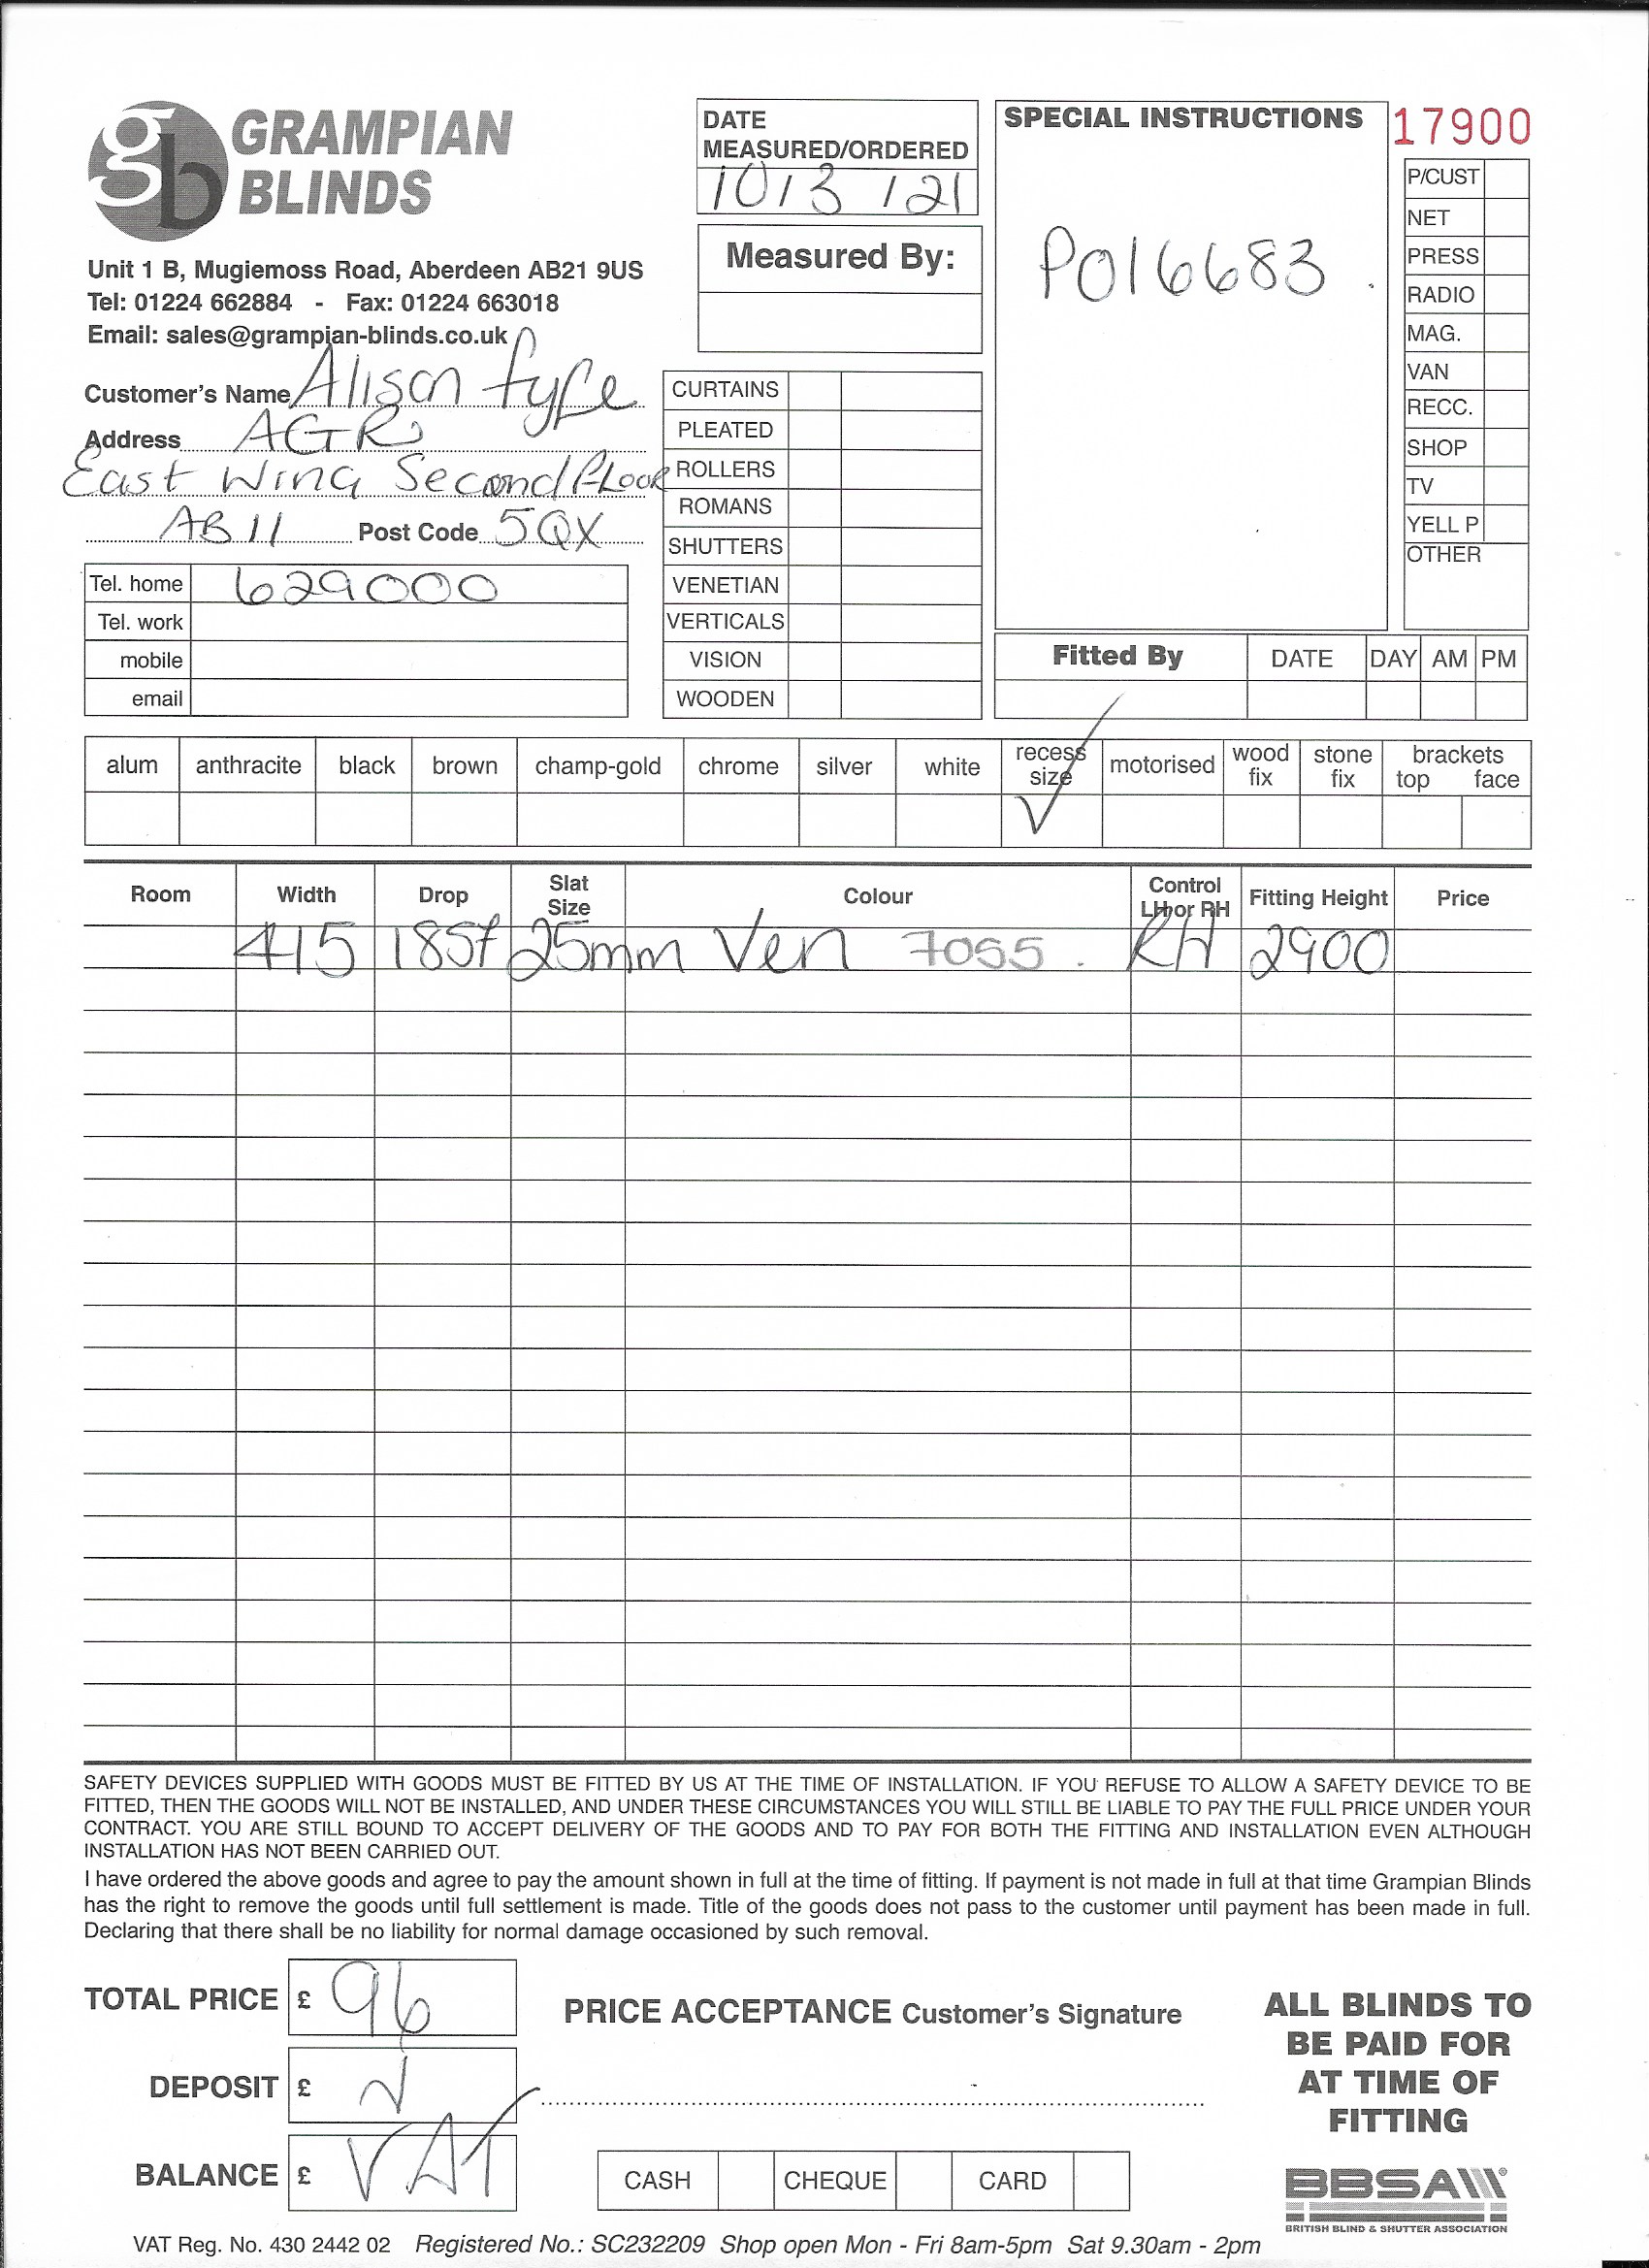 gb GRAMPIAN
BLINDS
Unit 1 B, Mugiemoss Road, Aberdeen AB21 9US
Tel: 01224 662884 - Fax: 01224 663018
Email: sales@grampian-blinds.co.uk
Customer's Name Alison Fyfe
Address AGR
East Wing Second Floor
AB11 Post Code 5QX
Tel. home 629000
Tel. work
mobile
email
DATE
MEASURED/ORDERED
10/3/21
Measured By:
CURTAINS
PLEATED
ROLLERS
ROMANS
SHUTTERS
VENETIAN
VERTICALS
VISION
WOODEN
SPECIAL INSTRUCTIONS
PO16683.
17900
P/CUST
NET
PRESS
RADIO
MAG.
VAN
RECC.
SHOP
TV
YELL P
OTHER
Fitted By DATE DAY AM PM
alum anthracite black brown champ-gold chrome silver white recess size motorised wood fix stone fix brackets top face
Room Width Drop Slat Size Colour Control LH or RH Fitting Height Price
415 1857 25mm Ven 7055. RH 2900
SAFETY DEVICES SUPPLIED WITH GOODS MUST BE FITTED BY US AT THE TIME OF INSTALLATION. IF YOU REFUSE TO ALLOW A SAFETY DEVICE TO BE
FITTED, THEN THE GOODS WILL NOT BE INSTALLED, AND UNDER THESE CIRCUMSTANCES YOU WILL STILL BE LIABLE TO PAY THE FULL PRICE UNDER YOUR
CONTRACT. YOU ARE STILL BOUND TO ACCEPT DELIVERY OF THE GOODS AND TO PAY FOR BOTH THE FITTING AND INSTALLATION EVEN ALTHOUGH
INSTALLATION HAS NOT BEEN CARRIED OUT.
I have ordered the above goods and agree to pay the amount shown in full at the time of fitting. If payment is not made in full at that time Grampian Blinds
has the right to remove the goods until full settlement is made. Title of the goods does not pass to the customer until payment has been made in full.
Declaring that there shall be no liability for normal damage occasioned by such removal.
TOTAL PRICE £ 96
DEPOSIT £
BALANCE £ VAT
PRICE ACCEPTANCE Customer's Signature
CASH CHEQUE CARD
ALL BLINDS TO
BE PAID FOR
AT TIME OF
FITTING
BBSA
BRITISH BLIND & SHUTTER ASSOCIATION
VAT Reg. No. 430 2442 02 Registered No.: SC232209 Shop open Mon - Fri 8am-5pm Sat 9.30am - 2pm